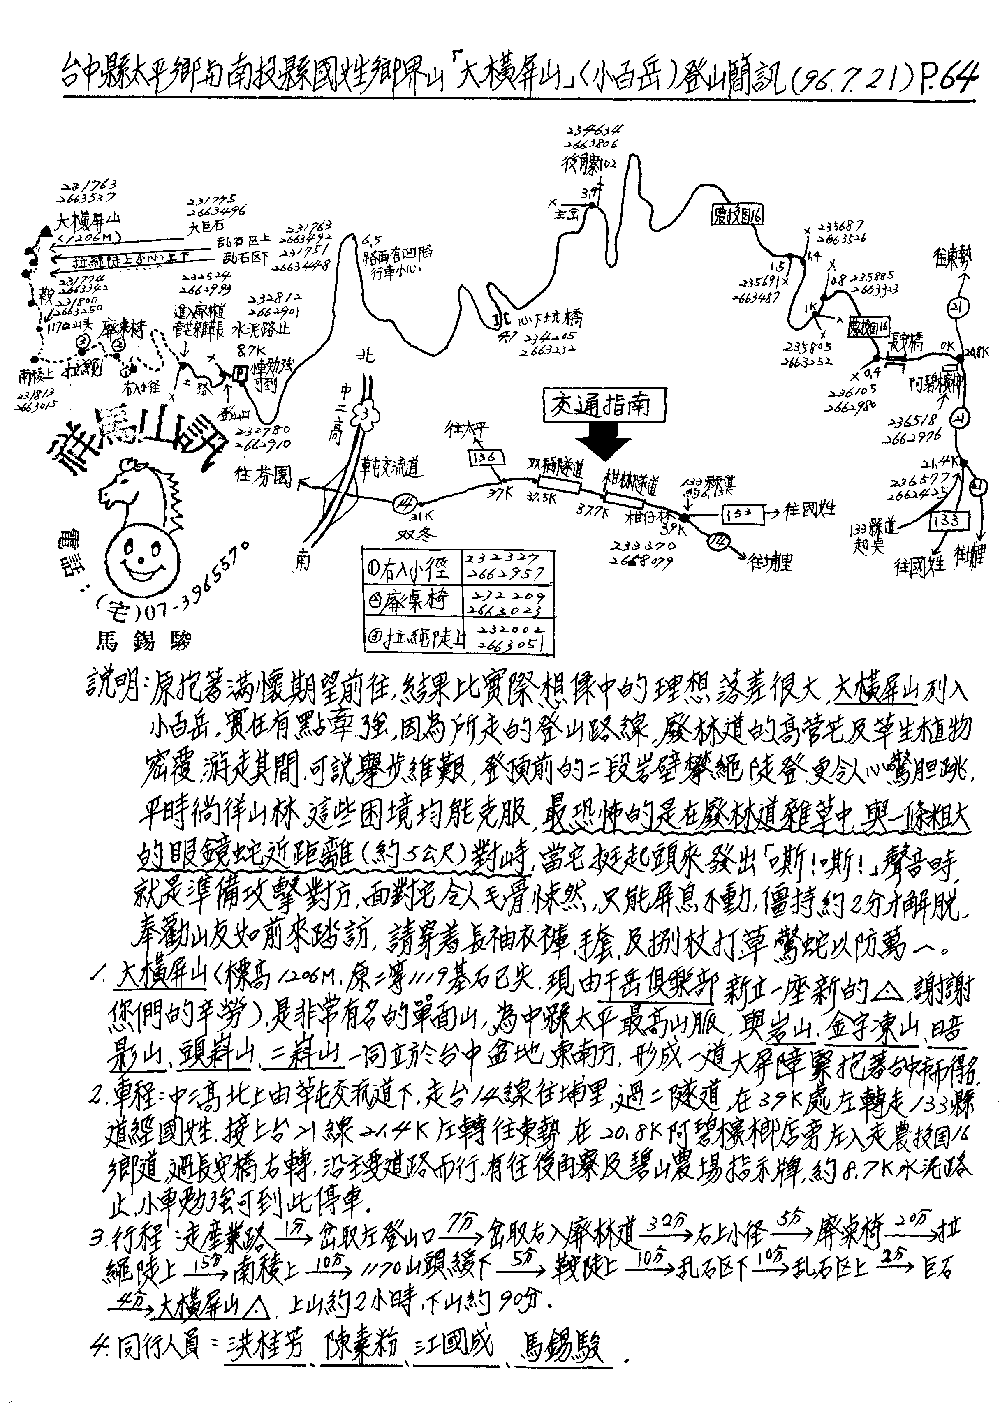 台中縣太平鄉与南投縣國姓鄉界山「大橫屏山」(小百岳)登山簡訊(96.7.21)P.64
234634
2663806
後用寮102
3.9K
主岳
231763
2663527
大橫屏山
(1206M)
231745
2663496
大巨石
乱石区上
231763
2663492
乱石区下
231751
2663448
拉繩陡上
231774
2663342
鞍
231800
2663250
1170山頭
廢桌椅
拉繩
右入小徑
南稜上
231813
2663015
232524
2662993
進入廢林道
232812
2662901
水泥路止
8.7K
P
轎勉強
可到
登山口
232780
2662910
6.5
路面有凹陷
行車小心!
心下土坑橋
4.7
234205
2663232
農投国16
1.5
235691
2663487
1.4
235687
2663526
0.8
235885
2663323
1K
235805
2663252
農投国16
長安橋
0K
20.8K
阿碧檳榔
0.4
236105
2662980
236518
2662976
往東勢
21
21
21.4K
236577
2662425
133縣道
起點
133
往國姓
往埔里
21
祥馬山訊
電話:(宅)07-3965570
馬錫駿
北
中二高
3
南
往芬園
草屯交流道
14
21K
双冬
往太平
136
37K
双福隧道
37.5K
柑林隧道
37.7K
柑仔林
39K
133縣道
233370
2658079
133
往國姓
14
往埔里
交通指南
①右入小徑 232327 2662957
②廢桌椅 232209 2663023
③拉繩陡上 232002 2663051
說明:原抱著滿懷期望前往,結果比實際想像中的理想落差很大,大橫屏山列入
小百岳,實在有點牽強,因為所走的登山路線,廢林道的高管芒及草生植物
密覆,游走其間,可說舉步維艱,登頂前的二段岩壁攀繩陡登更令人心驚胆跳,
平時徜徉山林,這些困境均能克服,最恐怖的是在廢林道雜草中,與一條粗大
的眼鏡蛇近距離(約5公尺)對峙,當它挺起頭來發出「嘶!嘶!」聲音時,
就是準備攻擊對方,面對它令人毛骨悚然,只能屏息不動,僵持約2分才解脫,
奉勸山友如前來踏訪,請穿着長袖衣褲,手套,及捌杖打草驚蛇以防萬一。
1.大橫屏山(標高1206M,原二等1119基石已失,現由千岳俱樂部新立一座新的△,謝謝
您們的辛勞),是非常有名的單面山,為中縣太平最高山脈,與岩山,金字凍山,暗
影山,頭嵙山,二嵙山一同立於台中盆地東南方,形成一道大屏障緊抱著台中市而得名
2.車程:中二高北上由草屯交流道下,走台14線往埔里,過二隧道,在39K處左轉走133縣
道經國姓,接上台21線21.4K左轉往東勢,在20.8K阿碧檳榔店旁左入走農投国16
鄉道,過長安橋右轉,沿主要道路而行,有往後角寮及碧山農場指示牌,約8.7K水泥路
止,小車勉強可到此停車.
3.行程:走産業路 1分→ 岔取左登山口 7分→ 岔取右入廢林道 32分→ 右上小徑 5分→ 廢桌椅 20分→ 拉
繩陡上 15分→ 南稜上 10分→ 1170山頭緩下 5分→ 鞍陡上 10分→ 乱石区下 10分→ 乱石区上 2分→ 巨石
4分→ 大橫屏山△,上山約2小時,下山約90分.
4.同行人員:洪桂芳、陳素粉、江國成、馬錫駿.